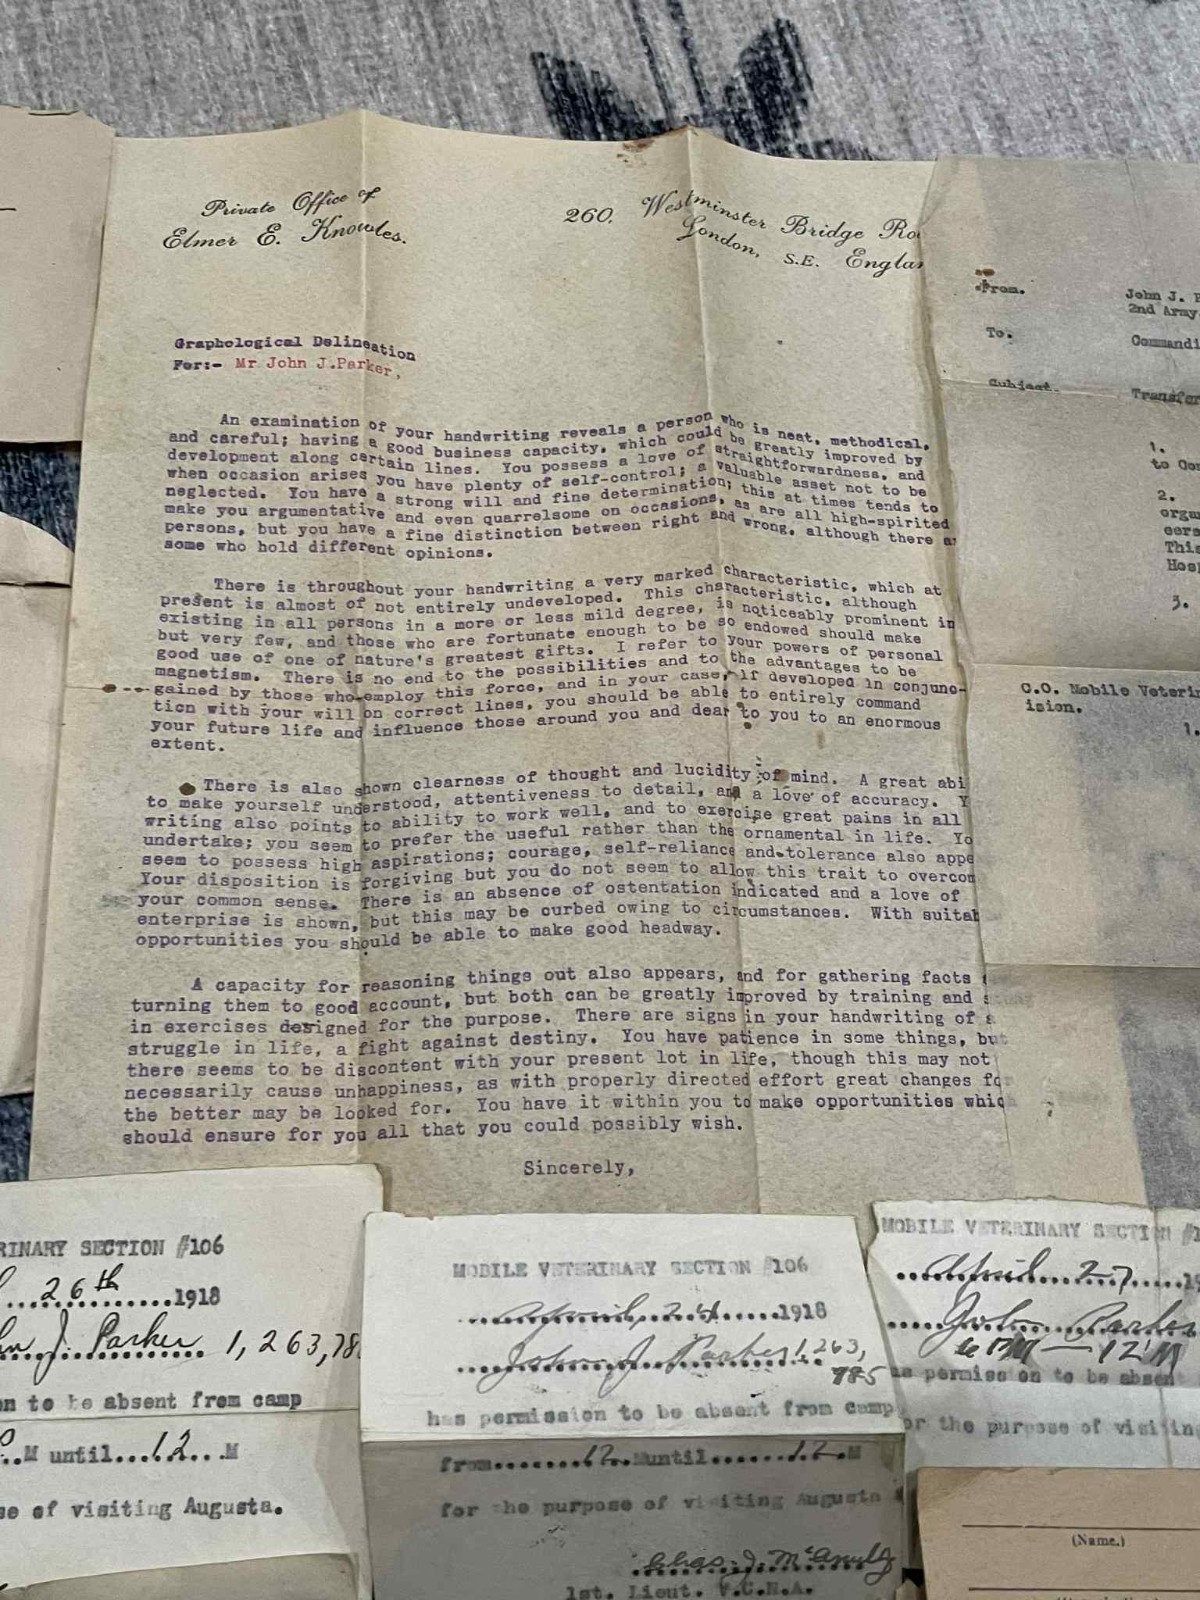 Private Office of
Elmer E. Knowles.
260. Westminster Bridge
London, S.E.
Graphological Delineation
For:- Mr John J.Parker,
An examination of your handwriting reveals a person who is neat, methodical,
and careful; having a good business capacity, which could be greatly improved by
development along certain lines. You possess a love of straightforwardness, and
when occasion arises you have plenty of self-control; a valuable asset not to be
neglected. You have a strong will and fine determination; this at times tends to
make you argumentative and even quarrelsome on occasions, as are all high-spirited
persons, but you have a fine distinction between right and wrong, although there
some who hold different opinions.
There is throughout your handwriting a very marked characteristic, which at
present is almost of not entirely undeveloped. This characteristic, although
existing in all persons in a more or less mild degree, is noticeably prominent in
but very few, and those who are fortunate enough to be so endowed should make
good use of one of nature's greatest gifts. I refer to your powers of personal
magnetism. There is no end to the possibilities and to the advantages to be
gained by those who employ this force, and in your case, if developed in conjunc-
tion with your will on correct lines, you should be able to entirely command
your future life and influence those around you and dear to you to an enormous
extent.
There is also shown clearness of thought and lucidity of mind. A great abi
to make yourself understood, attentiveness to detail, and a love of accuracy. Y
writing also points to ability to work well, and to exercise great pains in all
undertake; you seem to prefer the useful rather than the ornamental in life. Yo
seem to possess high aspirations; courage, self-reliance and tolerance also appe
Your disposition is forgiving but you do not seem to allow this trait to overcom
your common sense. There is an absence of ostentation indicated and a love of
enterprise is shown, but this may be curbed owing to circumstances. With suitab
opportunities you should be able to make good headway.
A capacity for reasoning things out also appears, and for gathering facts
turning them to good account, but both can be greatly improved by training and
in exercises designed for the purpose. There are signs in your handwriting of a
struggle in life, a fight against destiny. You have patience in some things, but
there seems to be discontent with your present lot in life, though this may not
necessarily cause unhappiness, as with properly directed effort great changes for
the better may be looked for. You have it within you to make opportunities which
should ensure for you all that you could possibly wish.
Sincerely,
From. John J. P
2nd Army
To. Commandi
Subject. Transfer
1.
to Com
2.
organ
This
Hosp
3.
C.O. Mobile Veterin
ision.
1.
RINARY SECTION #106
26th 1918
hn J. Parker 1,263,78
on to be absent from camp
M until 12 M
se of visiting Augusta.
MOBILE VETERINARY SECTION #106
April, 24 1918
John J Parker 1,263,
785
has permission to be absent from camp
from 12 M until 12 M
for the purpose of visiting Augusta
Chas. J. McAnulty
1st. Lieut. V.C.N.A.
MOBILE VETERINARY SECTION #1
April 27 19
John Parker
6 PM — 12 M
as permission to be absent
or the purpose of visiting
(Name.)